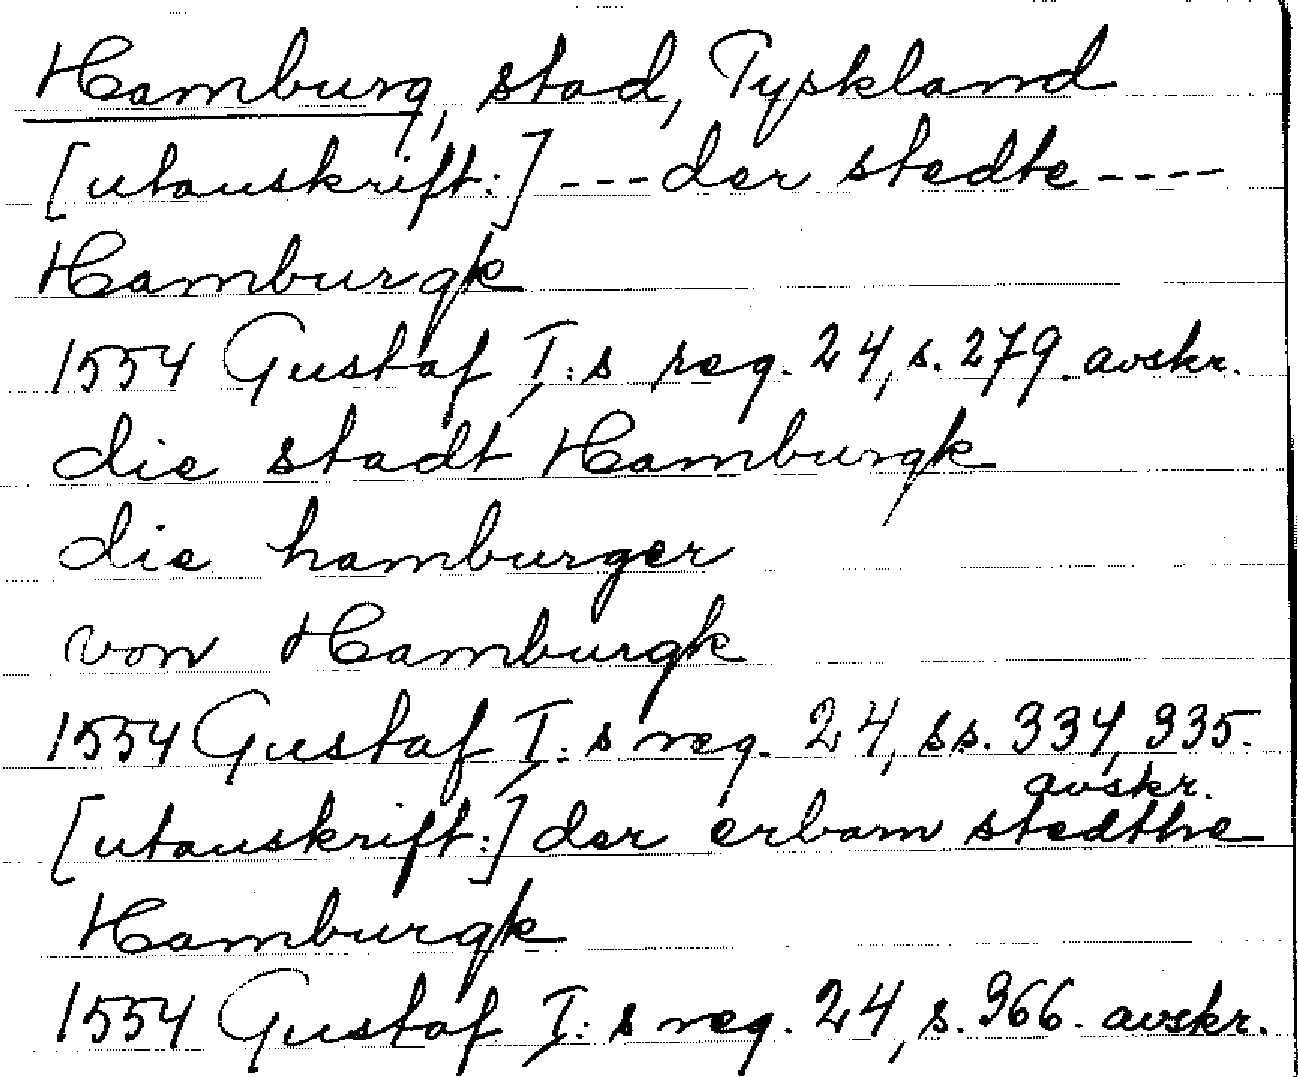 Hamburg, stad, Tyskland
[utanskrift:] --- der stedte ----
Hamburgk
1554 Gustaf I:s reg. 24, s. 279. avskr.
die stadt Hamburgk
die hamburger
von Hamburgk
1554 Gustaf I:s reg. 24, ss. 334, 335.
avskr.
[utanskrift:] der erbarn stedthe
Hamburgk
1554 Gustaf I:s reg. 24, s. 366. avskr.